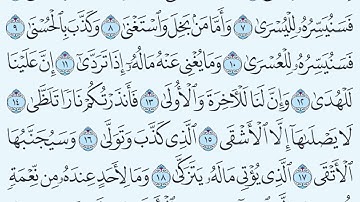 فَسَنُيَسِّرُهُۥ لِلْيُسْرَىٰ ٧ وَأَمَّا مَنۢ بَخِلَ وَٱسْتَغْنَىٰ ٨ وَكَذَّبَ بِٱلْحُسْنَىٰ ٩
فَسَنُيَسِّرُهُۥ لِلْعُسْرَىٰ ١٠ وَمَا يُغْنِى عَنْهُ مَالُهُۥٓ إِذَا تَرَدَّىٰٓ ١١ إِنَّ عَلَيْنَا
لَلْهُدَىٰ ١٢ وَإِنَّ لَنَا لَلْـَٔاخِرَةَ وَٱلْأُولَىٰ ١٣ فَأَنذَرْتُكُمْ نَارًا تَلَظَّىٰ ١٤
لَا يَصْلَىٰهَآ إِلَّا ٱلْأَشْقَى ١٥ ٱلَّذِى كَذَّبَ وَتَوَلَّىٰ ١٦ وَسَيُجَنَّبُهَا
ٱلْأَتْقَى ١٧ ٱلَّذِى يُؤْتِى مَالَهُۥ يَتَزَكَّىٰ ١٨ وَمَا لِأَحَدٍ عِندَهُۥ مِن نِّعْمَةٍ